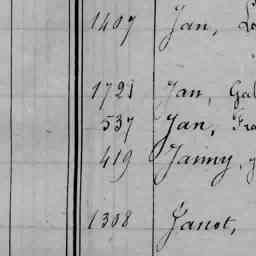 1407 Jan,
1721 Jan, Gal
537 Jan, Fra
419 Janny,
1308 Janot,